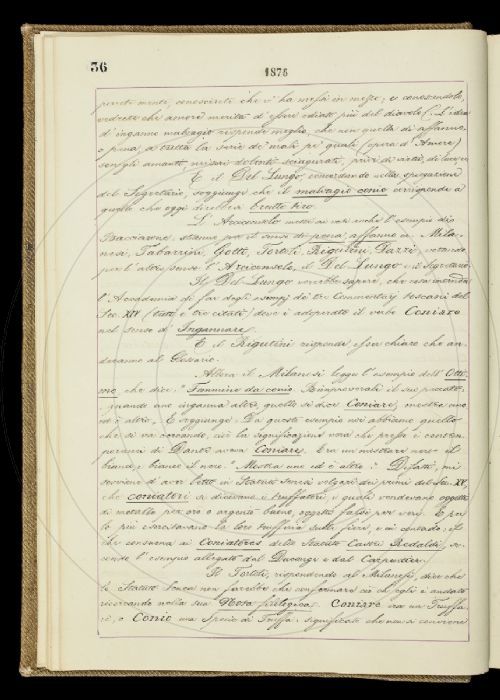 36
1875
porrete mente, conoscerete che vi ha messi in mezzo; e conoscendolo,
vedrete che amore merita d'essere odiato più del diavolo. (L'idea
d'inganno malvagio risponde meglio, che non quella di affanno
o pena, a tutta la serie de' mali pe' quali (opera d'Amore)
son gli amanti miseri dolenti sciagurati, privi di virtù, di luce,
E il Del Lungo, concordando nella spiegazione
del Segretario, soggiunge che il malvagio conio corrisponde a
quello che oggi direbbesi brutto tiro.
L'Arciconsolo mette ai voti anche l'esempio di
stanno per il senso di pena, affanno i Mila-
nesi, Tabarrini, Gotti, Tortoli, Rigutini, Dazzi, votando
per l'altro senso l'Arciconsolo, il Del Lungo e il Segretario.
Il Del Lungo vorrebbe sapere, che cosa intenda
l'Accademia di far degli esempj de' tre Commentarj toscani del
Sec. XIV (tutti e tre citati) dove è adoperato il verbo Coniare
nel senso d'Ingannare.
E il Rigutini risponde esser chiaro che an-
deranno al Glossario.
Allora il Milanesi legge l'esempio dell'Otti-
mo che dice: "Femmine da conio. Rimproverali il suo peccato:
quando uno inganna altro, quello si dice Coniare, mostra uno
ed è altro. E soggiunge: Da questo esempio noi abbiamo quello
che si va cercando, cioè la significazione vera che presso i contem-
poranei di Dante aveva Coniare. Era un mostrare nero il
bianco, bianco il nero: "Mostra uno ed è altro." Difatti, mi
sovviene d'aver letto in Statuti Senesi volgari dei primi del Sec. XV,
che coniatori si dicevano i truffatori, i quali vendevano oggetti
di metallo per oro o argento buono, oggetti falsi per veri. E per
lo più esercitavano la loro trufferia sulle fiere, e ai contado; il
che consuona ai Coniatores dello Statuto Castri Redaldi, se-
condo l'esempio allegato dal Ducange e dal Carpentier.
Il Tortoli, rispondendo al Milanesi, dice che
lo Statuto Senese non farebbe che confermare ciò ch'egli è andato
ricercando nella sua Nota filologica. Coniare era un Truffa-
re, e Conio una specie di Truffa: significato che non si conviene